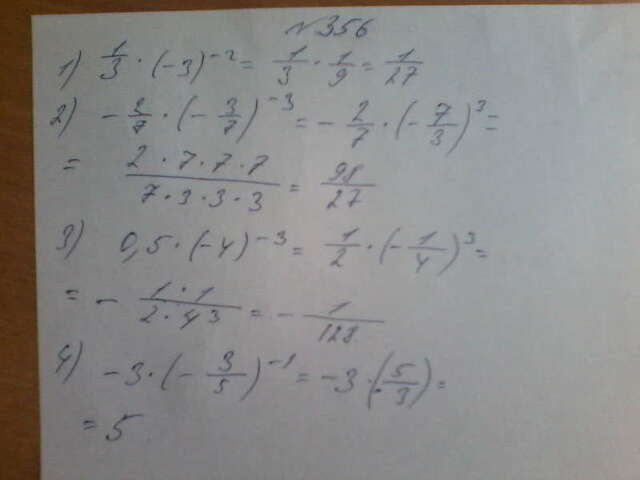 №356
1) 1/3 · (-3)^-2 = 1/3 · 1/9 = 1/27
2) - 2/7 · (- 3/7)^-3 = - 2/7 · (- 7/3)^3 =
= 2·7·7·7/7·3·3·3 = 98/27
3) 0,5 · (-4)^-3 = 1/2 · (- 1/4)^3 =
= - 1·1/2·4^3 = - 1/128
4) -3 · (- 3/5)^-1 = -3 · (- 5/3) =
= 5